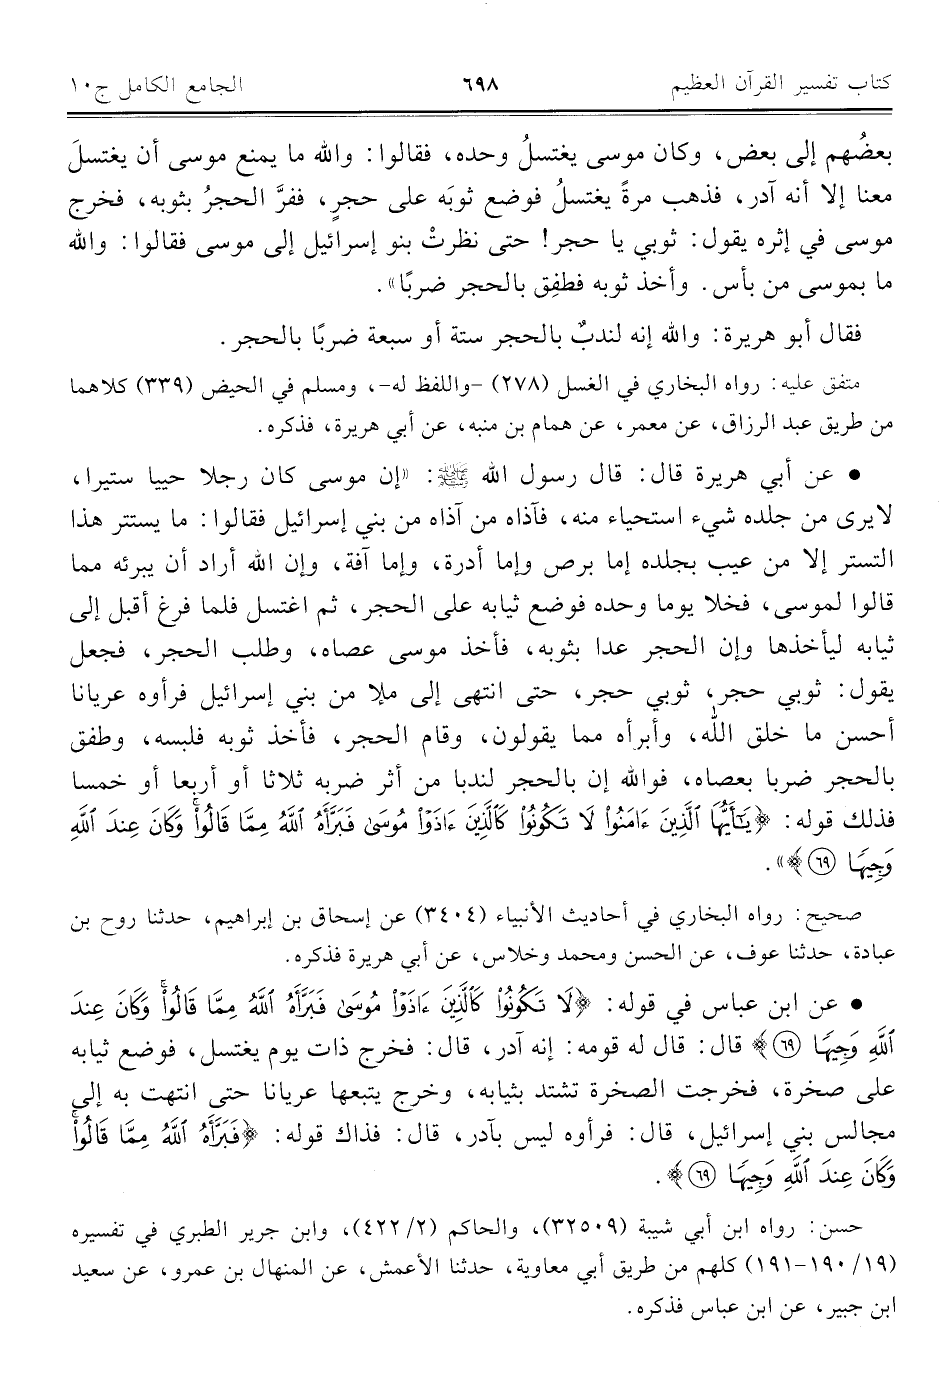 كتاب تفسير القرآن العظيم ٦٩٨ الجامع الكامل ج١٠
بعضُهم إلى بعض، وكان موسى يغتسلُ وحده، فقالوا: والله ما يمنع موسى أن يغتسلَ
معنا إلا أنه آدر، فذهب مرةً يغتسلُ فوضع ثوبَه على حجرٍ، ففرَّ الحجرُ بثوبه، فخرج
موسى في إثره يقول: ثوبي يا حجر! حتى نظرتْ بنو إسرائيل إلى موسى فقالوا: والله
ما بموسى من بأس. وأخذ ثوبه فطفِق بالحجر ضربًا».
فقال أبو هريرة: والله إنه لندبٌ بالحجر ستة أو سبعة ضربًا بالحجر.
متفق عليه: رواه البخاري في الغسل (٢٧٨) -واللفظ له-، ومسلم في الحيض (٣٣٩) كلاهما
من طريق عبد الرزاق، عن معمر، عن همام بن منبه، عن أبي هريرة، فذكره.
• عن أبي هريرة قال: قال رسول الله ﷺ: «إن موسى كان رجلا حييا ستيرا،
لايرى من جلده شيء استحياء منه، فآذاه من آذاه من بني إسرائيل فقالوا: ما يستتر هذا
التستر إلا من عيب بجلده إما برص وإما أدرة، وإما آفة، وإن الله أراد أن يبرئه مما
قالوا لموسى، فخلا يوما وحده فوضع ثيابه على الحجر، ثم اغتسل فلما فرغ أقبل إلى
ثيابه ليأخذها وإن الحجر عدا بثوبه، فأخذ موسى عصاه، وطلب الحجر، فجعل
يقول: ثوبي حجر، ثوبي حجر، حتى انتهى إلى ملإ من بني إسرائيل فرأوه عريانا
أحسن ما خلق الله، وأبرأه مما يقولون، وقام الحجر، فأخذ ثوبه فلبسه، وطفق
بالحجر ضربا بعصاه، فوالله إن بالحجر لندبا من أثر ضربه ثلاثا أو أربعا أو خمسا
فذلك قوله: ﴿يَٰٓأَيُّهَا ٱلَّذِينَ ءَامَنُواْ لَا تَكُونُواْ كَٱلَّذِينَ ءَاذَوۡاْ مُوسَىٰ فَبَرَّأَهُ ٱللَّهُ مِمَّا قَالُواْۚ وَكَانَ عِندَ ٱللَّهِ
وَجِيهٗا ٦٩﴾».
صحيح: رواه البخاري في أحاديث الأنبياء (٣٤٠٤) عن إسحاق بن إبراهيم، حدثنا روح بن
عبادة، حدثنا عوف، عن الحسن ومحمد وخلاس، عن أبي هريرة فذكره.
• عن ابن عباس في قوله: ﴿لَا تَكُونُواْ كَٱلَّذِينَ ءَاذَوۡاْ مُوسَىٰ فَبَرَّأَهُ ٱللَّهُ مِمَّا قَالُواْۚ وَكَانَ عِندَ
ٱللَّهِ وَجِيهٗا ٦٩﴾ قال: قال له قومه: إنه آدر، قال: فخرج ذات يوم يغتسل، فوضع ثيابه
على صخرة، فخرجت الصخرة تشتد بثيابه، وخرج يتبعها عريانا حتى انتهت به إلى
مجالس بني إسرائيل، قال: فرأوه ليس بآدر، قال: فذاك قوله: ﴿فَبَرَّأَهُ ٱللَّهُ مِمَّا قَالُواْۚ
وَكَانَ عِندَ ٱللَّهِ وَجِيهٗا ٦٩﴾.
حسن: رواه ابن أبي شيبة (٣٢٥٠٩)، والحاكم (٤٢٢/٢)، وابن جرير الطبري في تفسيره
(١٩/ ١٩٠-١٩١) كلهم من طريق أبي معاوية، حدثنا الأعمش، عن المنهال بن عمرو، عن سعيد
ابن جبير، عن ابن عباس فذكره.